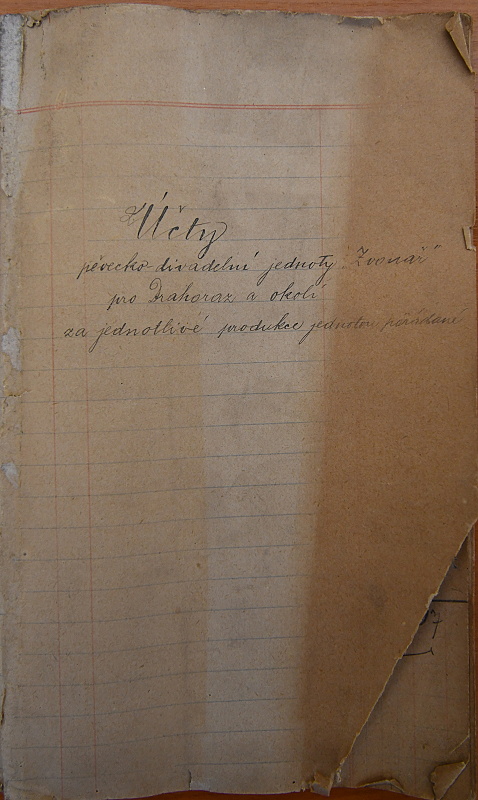 Účty
pěvecko-divadelní jednoty "Zvonář"
pro Drahoraz a okolí
za jednotlivé produkce jednotou pořádané
7